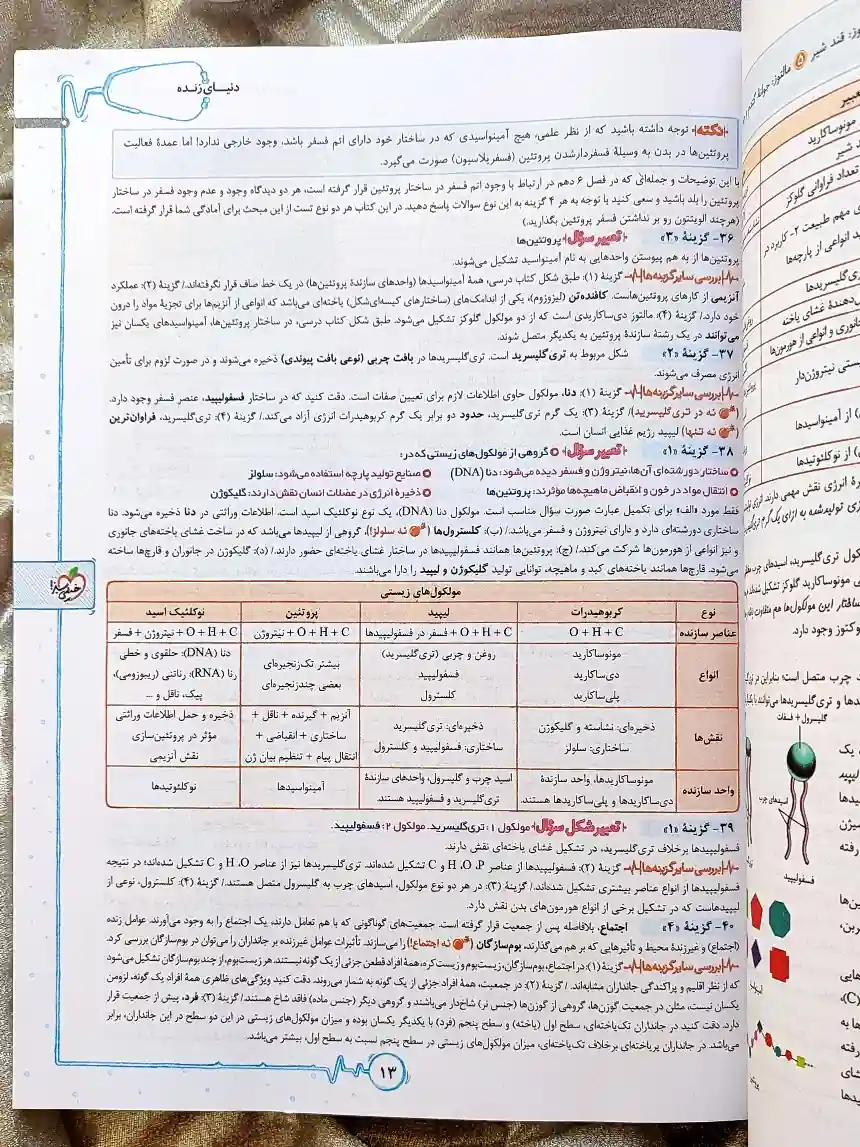 دنیای زنده
نکته توجه داشته باشید که از نظر علمی، هیچ آمینواسیدی که در ساختار خود دارای اتم فسفر باشد، وجود خارجی ندارد! اما عمدهٔ فعالیت
پروتئین‌ها در بدن به وسیلهٔ فسفردارشدن پروتئین (فسفریلاسیون) صورت می‌گیرد.
با این توضیحات و جمله‌ای که در فصل ۶ دهم در ارتباط با وجود اتم فسفر در ساختار پروتئین قرار گرفته است، هر دو دیدگاه وجود و عدم وجود فسفر در ساختار
پروتئین را بلد باشید و سعی کنید با توجه به هر ۴ گزینه به این نوع سوالات پاسخ دهید. در این کتاب هر دو نوع تست از این مبحث برای آمادگی شما قرار گرفته است.
(هرچند الویتتون رو بر نداشتن فسفر پروتئین بگذارید.)
۳۶- گزینهٔ «۳» تعبیر سؤال پروتئین‌ها
پروتئین‌ها از به هم پیوستن واحدهایی به نام آمینواسید تشکیل می‌شوند.
بررسی سایر گزینه‌ها گزینهٔ (۱): طبق شکل کتاب درسی، همهٔ آمینواسیدها (واحدهای سازندهٔ پروتئین‌ها) در یک خط صاف قرار نگرفته‌اند./ گزینهٔ (۲): عملکرد
آنزیمی از کارهای پروتئین‌هاست. کافنده‌تن (لیزوزوم)، یکی از اندامک‌های (ساختارهای کیسه‌ای‌شکل) یاخته‌ای می‌باشد که انواعی از آنزیم‌ها برای تجزیهٔ مواد را درون
خود دارد./ گزینهٔ (۴): مالتوز دی‌ساکاریدی است که از دو مولکول گلوکز تشکیل می‌شود. طبق شکل کتاب درسی، در ساختار پروتئین‌ها، آمینواسیدهای یکسان نیز
می‌توانند در یک رشتهٔ سازندهٔ پروتئین به یکدیگر متصل شوند.
۳۷- گزینهٔ «۲» شکل مربوط به تری‌گلیسرید است. تری‌گلیسریدها در بافت چربی (نوعی بافت پیوندی) ذخیره می‌شوند و در صورت لزوم برای تأمین
انرژی مصرف می‌شوند.
بررسی سایر گزینه‌ها گزینهٔ (۱): دنا، مولکول حاوی اطلاعات لازم برای تعیین صفات است. دقت کنید که در ساختار فسفولیپید، عنصر فسفر وجود دارد.
(نه در تری‌گلیسرید)/ گزینهٔ (۳): یک گرم تری‌گلیسرید، حدود دو برابر یک گرم کربوهیدرات انرژی آزاد می‌کند./ گزینهٔ (۴): تری‌گلیسرید، فراوان‌ترین
(نه تنها) لیپید رژیم غذایی انسان است.
۳۸- گزینهٔ «۱» تعبیر سؤال گروهی از مولکول‌های زیستی که در:
ساختار دو رشته‌ای آن‌ها، نیتروژن و فسفر دیده می‌شود: دنا (DNA) صنایع تولید پارچه استفاده می‌شود: سلولز
انتقال مواد در خون و انقباض ماهیچه‌ها مؤثرند: پروتئین‌ها ذخیرهٔ انرژی در عضلات انسان نقش دارند: گلیکوژن
فقط مورد «الف» برای تکمیل عبارت صورت سؤال مناسب است. مولکول دنا (DNA)، یک نوع نوکلئیک اسید است. اطلاعات وراثتی در دنا ذخیره می‌شود. دنا
ساختاری دورشته‌ای دارد و دارای نیتروژن و فسفر می‌باشد./ (ب): کلسترول‌ها (نه سلولز!)، گروهی از لیپیدها می‌باشد که در ساخت غشای یاخته‌های جانوری
و نیز انواعی از هورمون‌ها شرکت می‌کند./ (ج): پروتئین‌ها همانند فسفولیپیدها در ساختار غشای یاخته‌ای حضور دارند./ (د): گلیکوژن در جانوران و قارچ‌ها ساخته
می‌شود. قارچ‌ها همانند یاخته‌های کبد و ماهیچه، توانایی تولید گلیکوژن و لیپید را دارا می‌باشند.
مولکول‌های زیستی
نوع کربوهیدرات لیپید پروتئین نوکلئیک اسید
عناصر سازنده O + H + C O + H + C + فسفر در فسفولیپیدها O + H + C + نیتروژن O + H + C + نیتروژن + فسفر
انواع مونوساکارید دی‌ساکارید پلی‌ساکارید روغن و چربی (تری‌گلیسرید) فسفولیپید کلسترول بیشتر تک‌زنجیره‌ای بعضی چندزنجیره‌ای دنا (DNA): حلقوی و خطی رنا (RNA): رناتنی (ریبوزومی)، پیک، ناقل و ...
نقش‌ها ذخیره‌ای: نشاسته و گلیکوژن ساختاری: سلولز ذخیره‌ای: تری‌گلیسرید ساختاری: فسفولیپید و کلسترول آنزیم + گیرنده + ناقل + ساختاری + انقباضی + انتقال پیام + تنظیم بیان ژن ذخیره و حمل اطلاعات وراثتی مؤثر در پروتئین‌سازی نقش آنزیمی
واحد سازنده مونوساکاریدها، واحد سازندهٔ دی‌ساکاریدها و پلی‌ساکاریدها هستند. اسید چرب و گلیسرول، واحدهای سازندهٔ تری‌گلیسرید و فسفولیپید هستند. آمینواسیدها نوکلئوتیدها
۳۹- گزینهٔ «۱» تعبیر شکل سؤال مولکول ۱: تری‌گلیسرید. مولکول ۲: فسفولیپید.
فسفولیپیدها برخلاف تری‌گلیسرید، در تشکیل غشای یاخته‌ای نقش دارند.
بررسی سایر گزینه‌ها گزینهٔ (۲): فسفولیپیدها از عناصر H ،O ،P و C تشکیل شده‌اند. تری‌گلیسریدها نیز از عناصر H ،O و C تشکیل شده‌اند؛ در نتیجه
فسفولیپیدها از انواع عناصر بیشتری تشکیل شده‌اند./ گزینهٔ (۳): در هر دو نوع مولکول، اسیدهای چرب به گلیسرول متصل هستند./ گزینهٔ (۴): کلسترول، نوعی از
لیپیدهاست که در تشکیل برخی از انواع هورمون‌های بدن نقش دارد.
۴۰- گزینهٔ «۴» اجتماع، بلافاصله پس از جمعیت قرار گرفته است. جمعیت‌های گوناگونی که با هم تعامل دارند، یک اجتماع را به وجود می‌آورند. عوامل زنده
(اجتماع) و غیرزندهٔ محیط و تأثیرهایی که بر هم می‌گذارند، بوم‌سازگان (نه اجتماع!) را می‌سازند. تأثیرات عوامل غیرزنده بر جانداران را می‌توان در بوم‌سازگان بررسی کرد.
بررسی سایر گزینه‌ها گزینهٔ (۱): در اجتماع، بوم‌سازگان، زیست‌بوم و زیست‌کره، همهٔ افراد قطعن جزئی از یک گونه نیستند. هر زیست‌بوم، از چند بوم‌سازگان تشکیل می‌شود
که از نظر اقلیم و پراکندگی جانداران مشابه‌اند. / گزینهٔ (۲): در جمعیت، همهٔ افراد جزئی از یک گونه به شمار می‌روند. دقت کنید ویژگی‌های ظاهری همهٔ افراد یک گونه، لزومن
یکسان نیست، مثلن در جمعیت گوزن‌ها، گروهی از گوزن‌ها (جنس نر) شاخ‌دار می‌باشند و گروهی دیگر (جنس ماده) فاقد شاخ هستند./ گزینهٔ (۳): فرد، پیش از جمعیت قرار
دارد. دقت کنید در جانداران تک‌یاخته‌ای، سطح اول (یاخته) و سطح پنجم (فرد) با یکدیگر یکسان بوده و میزان مولکول‌های زیستی در این دو سطح در این جانداران، برابر
می‌باشد. در جانداران پریاخته‌ای برخلاف تک‌یاخته‌ای، میزان مولکول‌های زیستی در سطح پنجم نسبت به سطح اول، بیشتر می‌باشد.
۱۳
خیلی سبز
مونوساکارید
تعداد فراوانی گلوکز
گلیسرول + فسفات
اسیدهای چرب
فسفولیپید